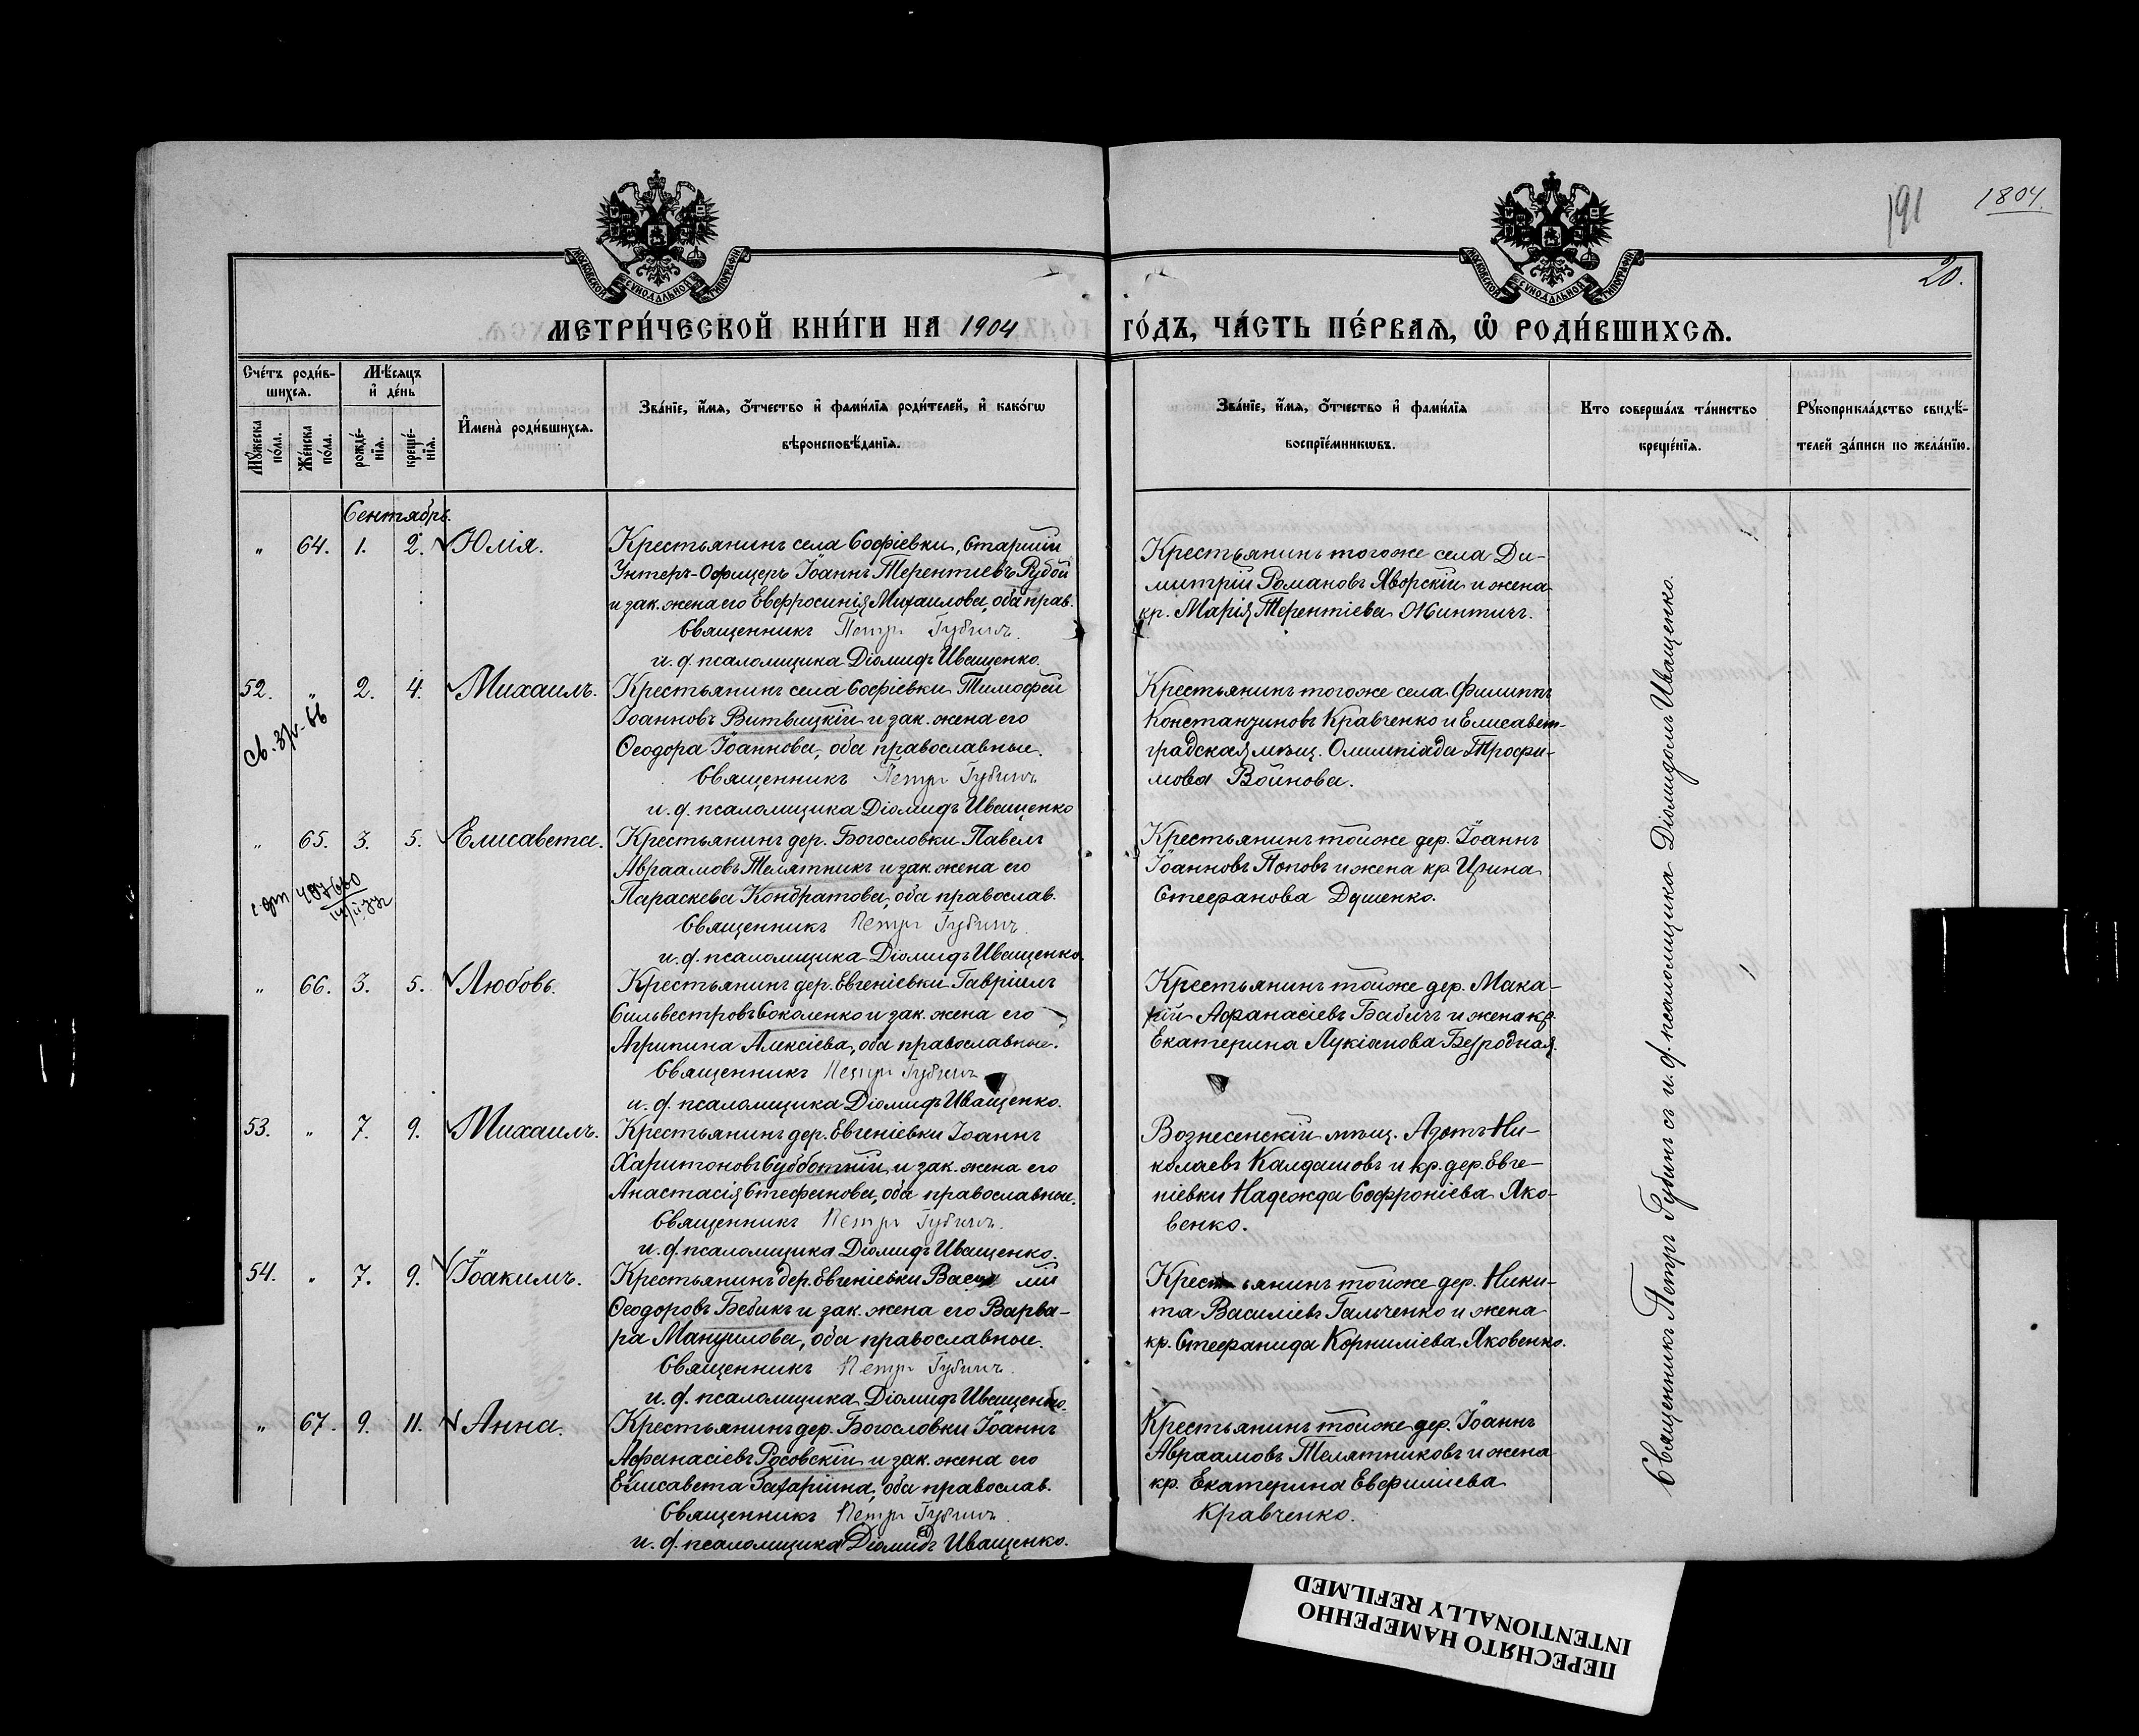 191
1804.
20.
МОСКОВСКОЙ СѴНОДАЛЬНОЙ ТИПОГРАФІИ
МОСКОВСКОЙ СѴНОДАЛЬНОЙ ТИПОГРАФІИ
МЕТРИ́ЧЕСКОЙ КНИ́ГИ НА 1904 ГО́ДЪ, ЧА́СТЬ ПЕ́РВАЯ, Ѡ҆ РОДИ́ВШИХСѦ.
Сче́тъ роди́в-
шихся.
Мѣ́сяцъ
и҆ де́нь
Мꙋ́жеска
по́ла.
Же́нска
по́ла.
рожде́-
нїя.
креще́-
нїя.
И҆мена̀ роди́вшихся.
Зва́нїе, и҆́мя, ѻ҆́тчество и҆ фами́лїя роди́телей, и҆ како́гѡ
вѣроисповѣ́данїя.
Зва́нїе, и҆́мя, ѻ҆́тчество и҆ фами́лїя
воспрїе́мникѡвъ.
Кто соверша́лъ та́инство
креще́нїя.
Рꙋкоприкла́дство свидѣ́-
телей за́писи по жела́нїю.
Сентябрь.
" 64. 1. 2. Юлія.
Крестьянинъ села Софіевки, Старшій
Унтеръ-Офицеръ Іоаннъ Терентіевъ Рубой
и зак. жена его Евфросинія Михаилова, оба прав.
Священникъ Петръ Губинъ.
и. д. псаломщика Діомидъ Иващенко.
Крестьянинъ тогоже села Ди-
митрій Романовъ Яворскій и жена
кр. Марія Терентіева Жинтичъ.
52. " 2. 4. Михаилъ.
Крестьянинъ села Софіевки Тимофей
Іоанновъ Витвицкій и зак. жена его
Ѳеодора Іоаннова, оба православные.
Священникъ Петръ Губинъ
и. д. псаломщика Діомидъ Иващенко
Крестьянинъ тогоже села Филиппъ
Константиновъ Кравченко и Елисавет-
градская мѣщ. Олимпіада Трофи-
мова Войнова.
" 65. 3. 5. Елисавета.
Крестьянинъ дер. Богословки Павелъ
Авраамовъ Телятникъ и зак. жена его
Параскева Кондратова, оба православ.
Священникъ Петръ Губинъ.
и. д. псаломщика Діомидъ Иващенко.
Крестьянинъ тойже дер. Іоаннъ
Іоанновъ Поповъ и жена кр. Ирина
Стефанова Душенко.
" 66. 3. 5. Любовь.
Крестьянинъ дер. Евгеніевки Гавріилъ
Сильвестровъ Соколенко и зак. жена его
Агрипина Алексіева, оба православные.
Священникъ Петръ Губинъ
и. д. псаломщика Діомидъ Иващенко.
Крестьянинъ тойже дер. Мака-
рій Афанасіевъ Бабичъ и жена кр.
Екатерина Лукіанова Безродная.
53. " 7. 9. Михаилъ.
Крестьянинъ дер. Евгеніевки Іоаннъ
Харитоновъ Субботній и зак. жена его
Анастасія Стефанова, оба православные.
Священникъ Петръ Губинъ.
и. д. псаломщика Діомидъ Иващенко.
Вознесенскій мѣщ. Азотъ Ни-
колаевъ Калдашовъ и кр. дер. Евге-
ніевки Надежда Софроніева Яко-
венко.
54. " 7. 9. Іоакимъ.
Крестьянинъ дер. Евгеніевки Василій
Ѳеодоровъ Бебикъ и зак. жена его Варва-
ра Мануилова, оба православные.
Священникъ Петръ Губинъ.
и. д. псаломщика Діомидъ Иващенко.
Крестьянинъ тойже дер. Ники-
та Василіевъ Гальченко и жена
кр. Стефанида Корниліева Яковенко.
" 67. 9. 11. Анна.
Крестьянинъ дер. Богословки Іоаннъ
Афанасіевъ Росовскій и зак. жена его
Елисавета Захаріина, оба православ.
Священникъ Петръ Губинъ.
и. д. псаломщика Діомидъ Иващенко.
Крестьянинъ тойже дер. Іоаннъ
Авраамовъ Телятниковъ и жена
кр. Екатерина Евфиміева
Кравченко.
Священникъ Петръ Губинъ съ и. д. псаломщика Діомидомъ Иващенко.
ПЕРЕСНЯТО НАМЕРЕННО
INTENTIONALLY REFILMED